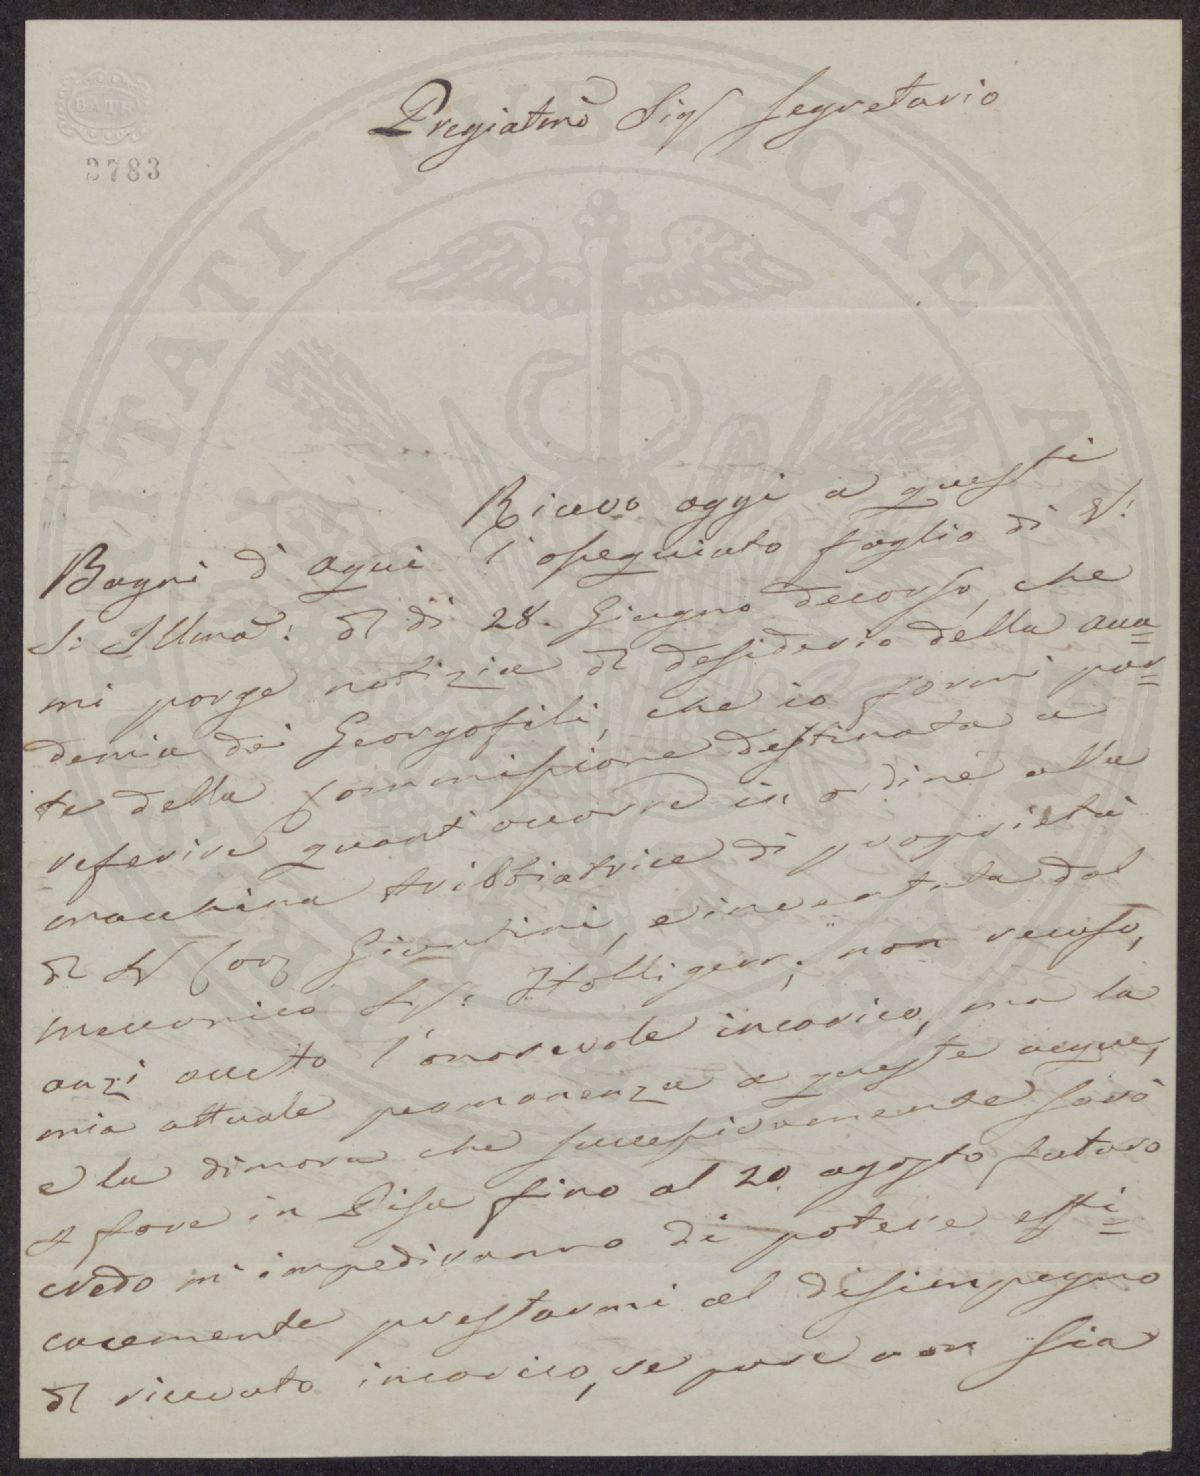 BATH
3783
Pregiatmo Sigr Segretario
Ricevo oggi a questi
Bagni d' Aqui l' ossequiato foglio di V.
S. Illma: del dì 28. Giugno decorso, che
mi porge notizia del desiderio della Acca=
demia dei Georgofili, che io formi par=
te della Commissione destinata a
referire quant' occorre in ordine alla
macchina tribbiatrice di proprietà
del Sr Giuntini, e inventata dal
meccanico Sigr. Holligers; non recuso,
anzi accetto l' onorevole incarico, ma la
mia attuale permanenza a queste acque,
e la dimora che successivamente sarò
p fare in Pisa fino al 20 agosto futuro
credo m' impediranno di potere effi=
cacemente prestarmi al disimpegno
del ricevuto incarico, se pure non sia